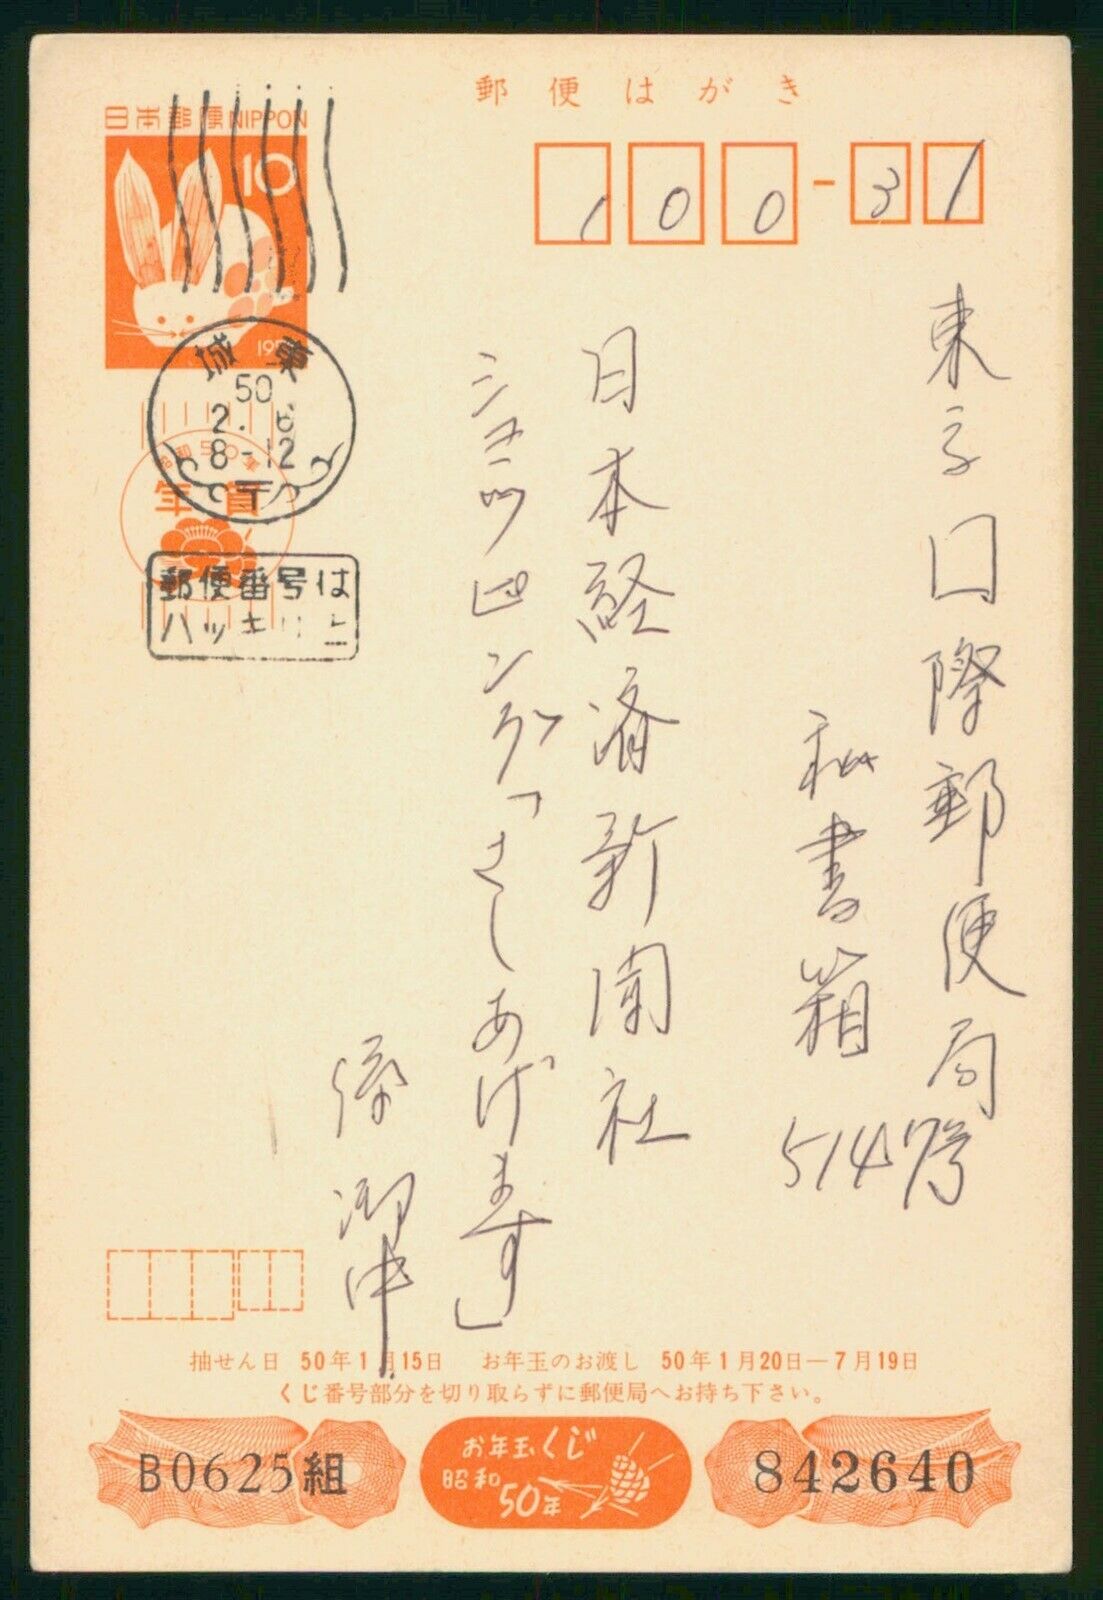 郵便はがき
日本郵便NIPPON
10
100-31
東京国際郵便局
私書箱
5147号
日本経済新聞社
ショッピング「さしあげます」
係 御中
城東
50
2. 6
8-12
年賀
郵便番号は
ハッキリと
抽せん日 50年1月15日 お年玉のお渡し 50年1月20日―7月19日
くじ番号部分を切り取らずに郵便局へお持ち下さい。
B0625組
お年玉くじ
昭和
50年
842640